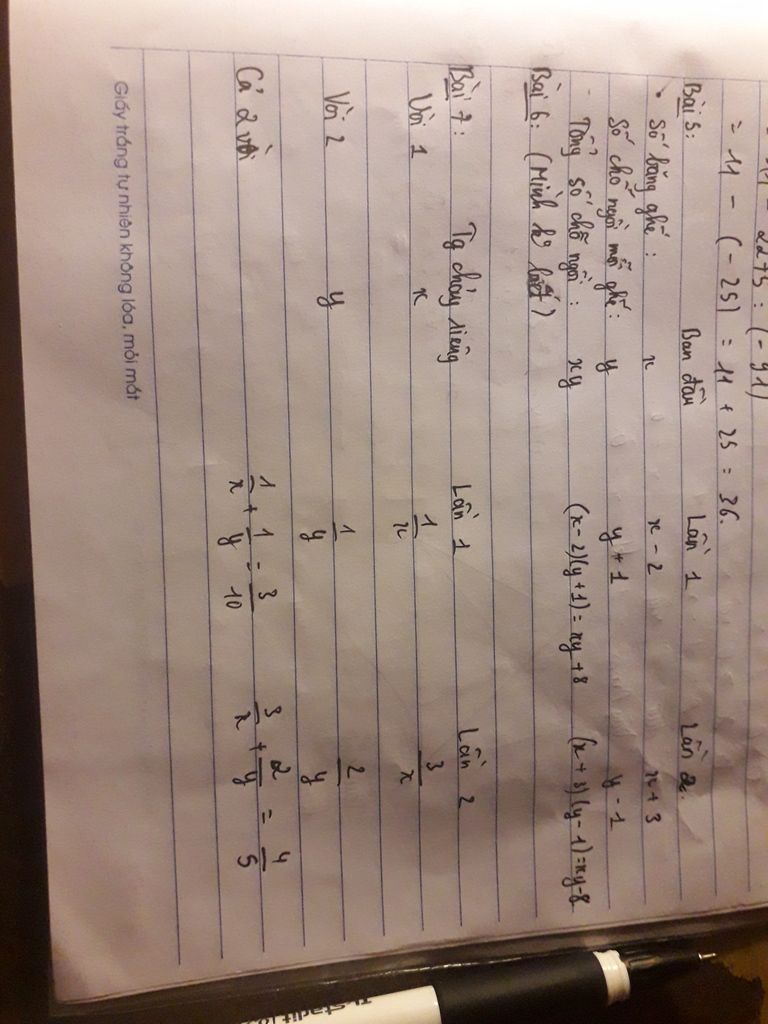 = 11 - 22 + 3 : (- 41)
= 11 - (- 25) = 11 + 25 = 36.
Bài 5: Ban đầu Lần 1 Lần 2
• Số băng ghế : x x - 2 x + 3
Số chỗ ngồi mỗi ghế : y y + 1 y - 1
- Tổng số chỗ ngồi : xy (x - 2)(y + 1) = xy + 8 (x + 3)(y - 1) = xy - 8
Bài 6: (Mình ko biết)
Bài 7: Tg chảy riêng Lần 1 Lần 2
Vòi 1 x 1/x 3/x
Vòi 2 y 1/y 2/y
Cả 2 vòi 1/x + 1/y = 3/10 3/x + 2/y = 4/5
Giấy trắng tự nhiên không lóa, mỏi mắt